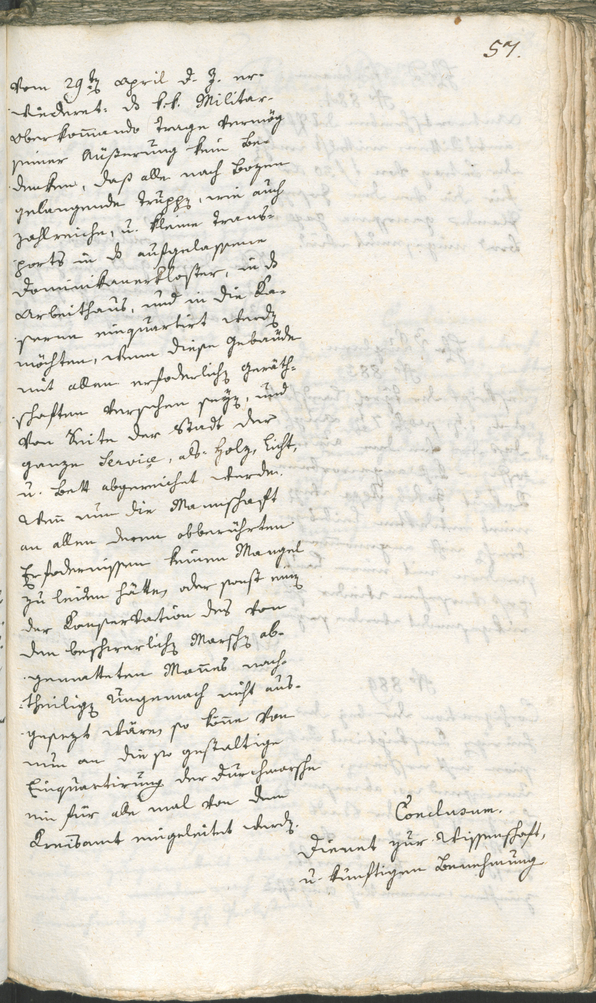 57.
vom 29ten April d. J. er-
wiederet: ds k.k. Militar-
oberkommando trage vermög
seiner Äußerung kein Be-
denken, daß alle nach Bozen
gelangende Truppen, wie auch
zahlreiche, u. kleine Trans-
ports in ds aufgelassene
Dominikanerkloster, in ds
Arbeithaus, und in die Ka-
serne einquartirt werden
möchten, wenn diese Gebäude
mit allen erforderlichen Geräth-
schaften versehen seyen, und
von Seite der Stadt der
ganze Service, als: Holz, Licht,
u. Bett abgereichet werde.
Wenn nun die Mannschaft
an allen denen obberührten
Erfodernissen keinen Mangel
zu leiden hätte, oder sonst einem
der Conservation des von
den beschwerlichen Marschen ab-
gematteten Mannes nach-
theiligen Ungemach nicht aus-
gesezt wäre, so könne von
nun an die so gestaltige
Einquartirung der Durchmarsche
ein für alle mal von dem
Kreisamt eingeleitet werden.
Conclusum.
Dienet zur Wissenschaft,
u. künftigen Benehmung